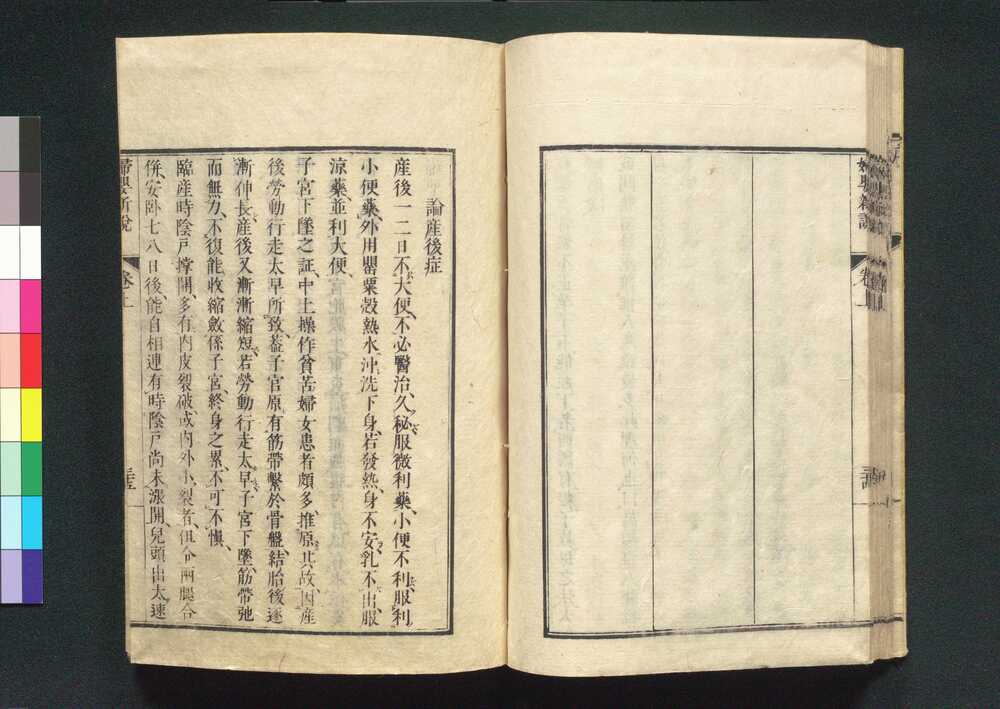 論產後症
產後一二日不大便、不必醫治、久秘服微利藥、小便不利、服利
小便藥、外用罌粟殼熱水沖洗下身、若發熱身不安、乳不出、服
涼藥並利大便、
子宮下墜之証、中土操作貧苦婦女患者頗多、推原其故、因產
後勞動行走太早所致、葢子宮原有筋帶繫於骨盤、結胎後逐
漸伸長、產後又漸漸縮短、若勞動行走太早、子宮下墜、筋帶弛
而無力、不復能收縮斂係子宮、終身之累、不可不慎、
臨產時陰戶撐開、多有內皮裂破、或內外小裂者、俱令兩腿合
併、安卧七八日後、能自相連、有時陰戶尚未漲開、兒頭出太速
婦嬰新說
卷上